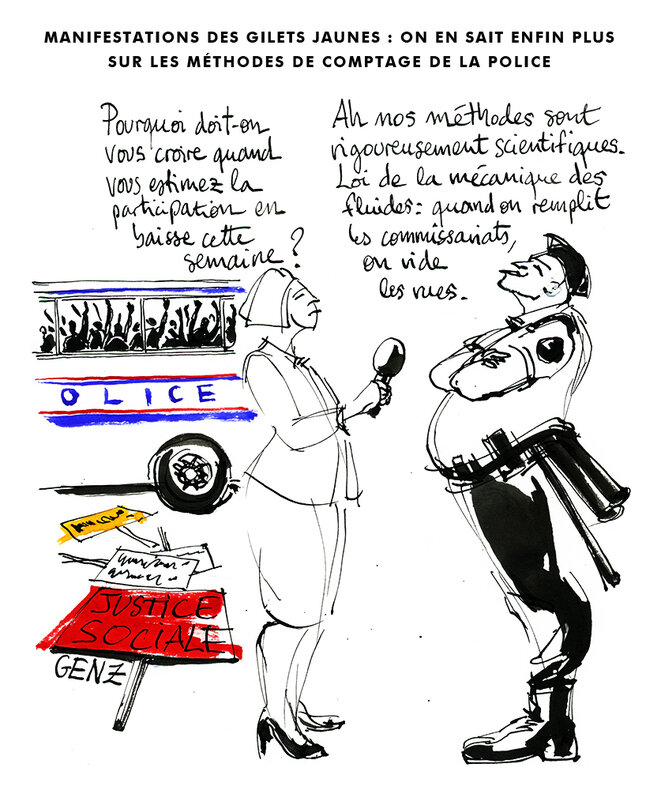 MANIFESTATIONS DES GILETS JAUNES : ON EN SAIT ENFIN PLUS
SUR LES MÉTHODES DE COMPTAGE DE LA POLICE
Pourquoi doit-on
vous croire quand
vous estimez la
participation en
baisse cette
semaine ?
Ah nos méthodes sont
rigoureusement scientifiques.
Loi de la mécanique des
fluides : quand on remplit
les commissariats,
on vide
les rues.
OLICE
JUSTICE
SOCIALE
GENZ